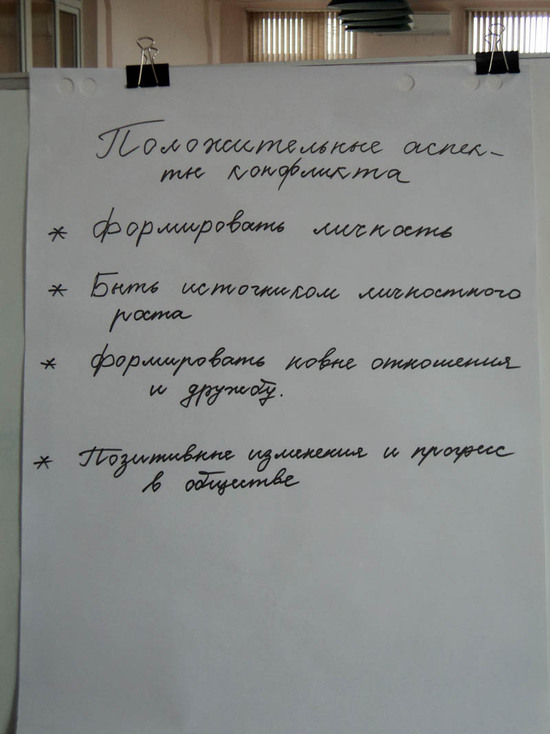 Положительные аспек-
ты конфликта
* формировать личность
* Быть источником личностного
роста
* формировать новые отношения
и дружбу.
* Позитивные изменения и прогресс
в обществе